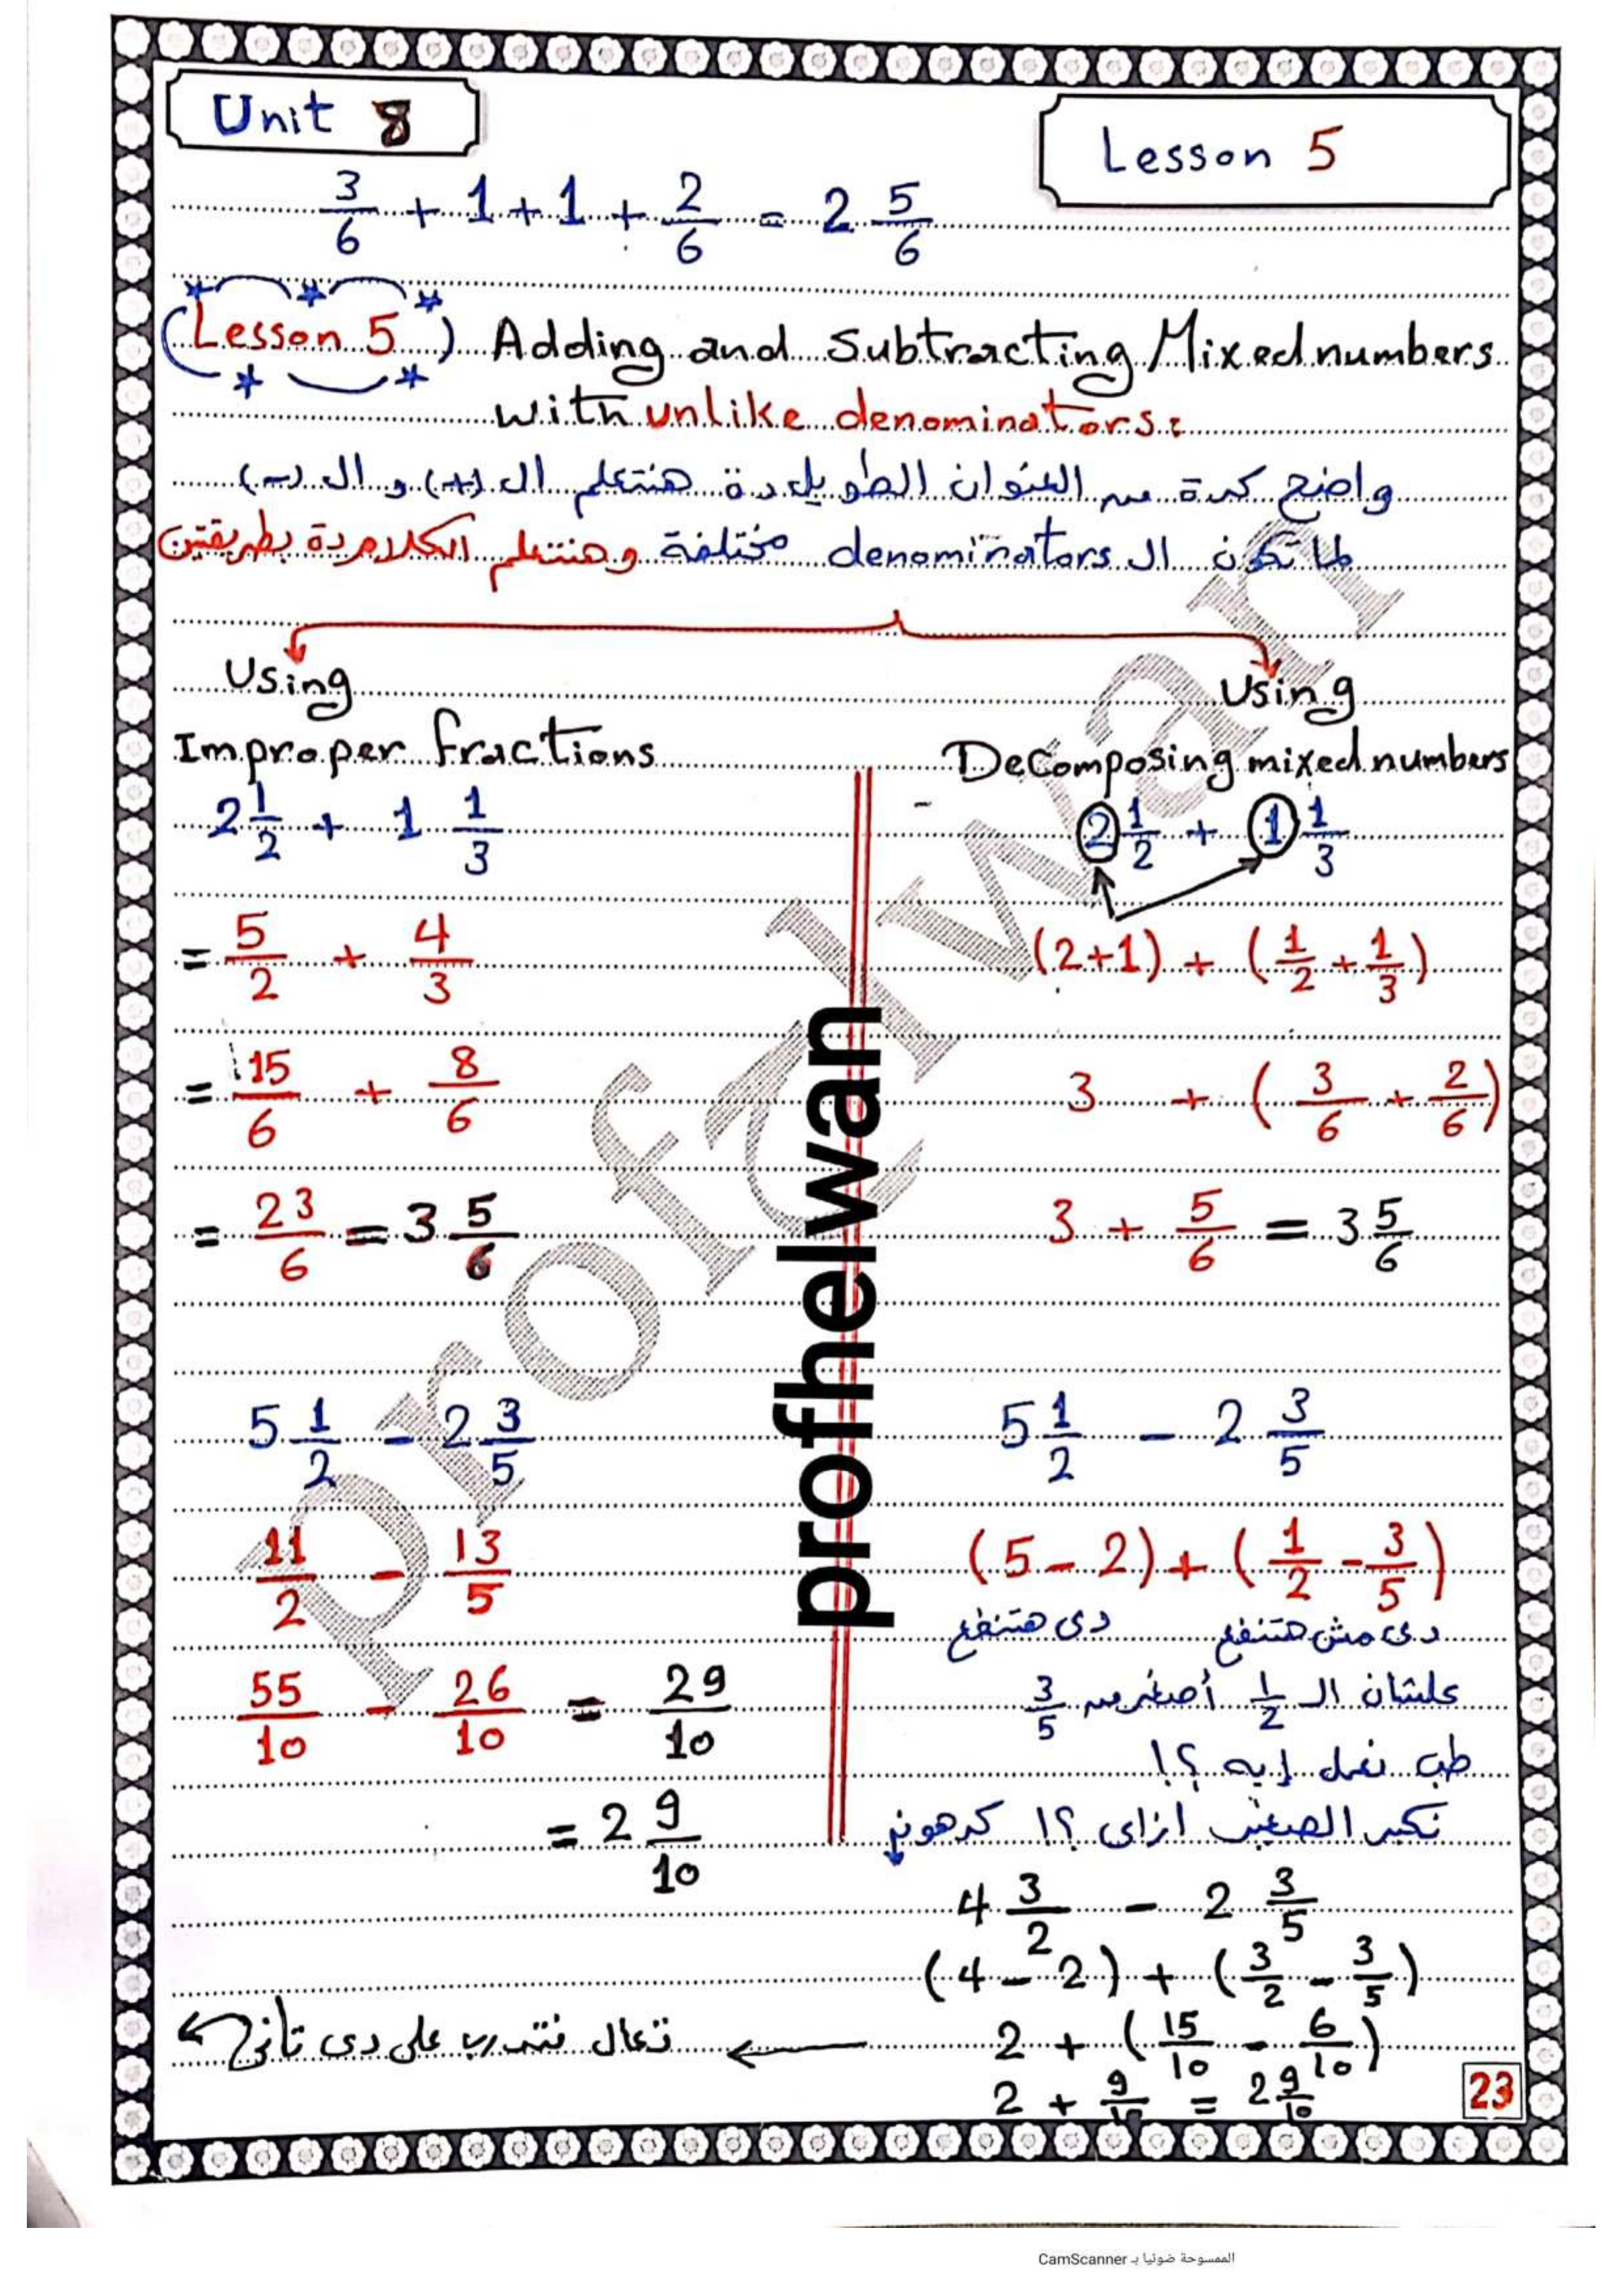 Unit 8
Lesson 5
3/6 + 1 + 1 + 2/6 = 2 5/6
(Lesson 5) Adding and subtracting Mixed numbers
with unlike denominators:
واضح كدة من العنوان الطويل دة هنتعلم ال (+) و ال (-)
لما تكون ال denominators مختلفة وهنتعلم الكلام دة بطريقتين
Using
Improper fractions
2 1/2 + 1 1/3
= 5/2 + 4/3
= 15/6 + 8/6
= 23/6 = 3 5/6
5 1/2 - 2 3/5
11/2 - 13/5
55/10 - 26/10 = 29/10
= 2 9/10
Using
Decomposing mixed numbers
2 1/2 + 1 1/3
(2+1) + (1/2 + 1/3)
3 + (3/6 + 2/6)
3 + 5/6 = 3 5/6
5 1/2 - 2 3/5
(5 - 2) + (1/2 - 3/5)
دى مش هتنفع دى هتنفع
علشان ال 1/2 أصغر من 3/5
طب نعمل إيه ؟!
نكبر الصغير ازاى ؟!
4 3/2 - 2 3/5
(4 - 2) + (3/2 - 3/5)
2 + (15/10 - 6/10)
2 + 9/10 = 2 9/10
تعال نتدرب على دى تانى
23
profhelwan
Prof Elwan
الممسوحة ضوئيا بـ CamScanner